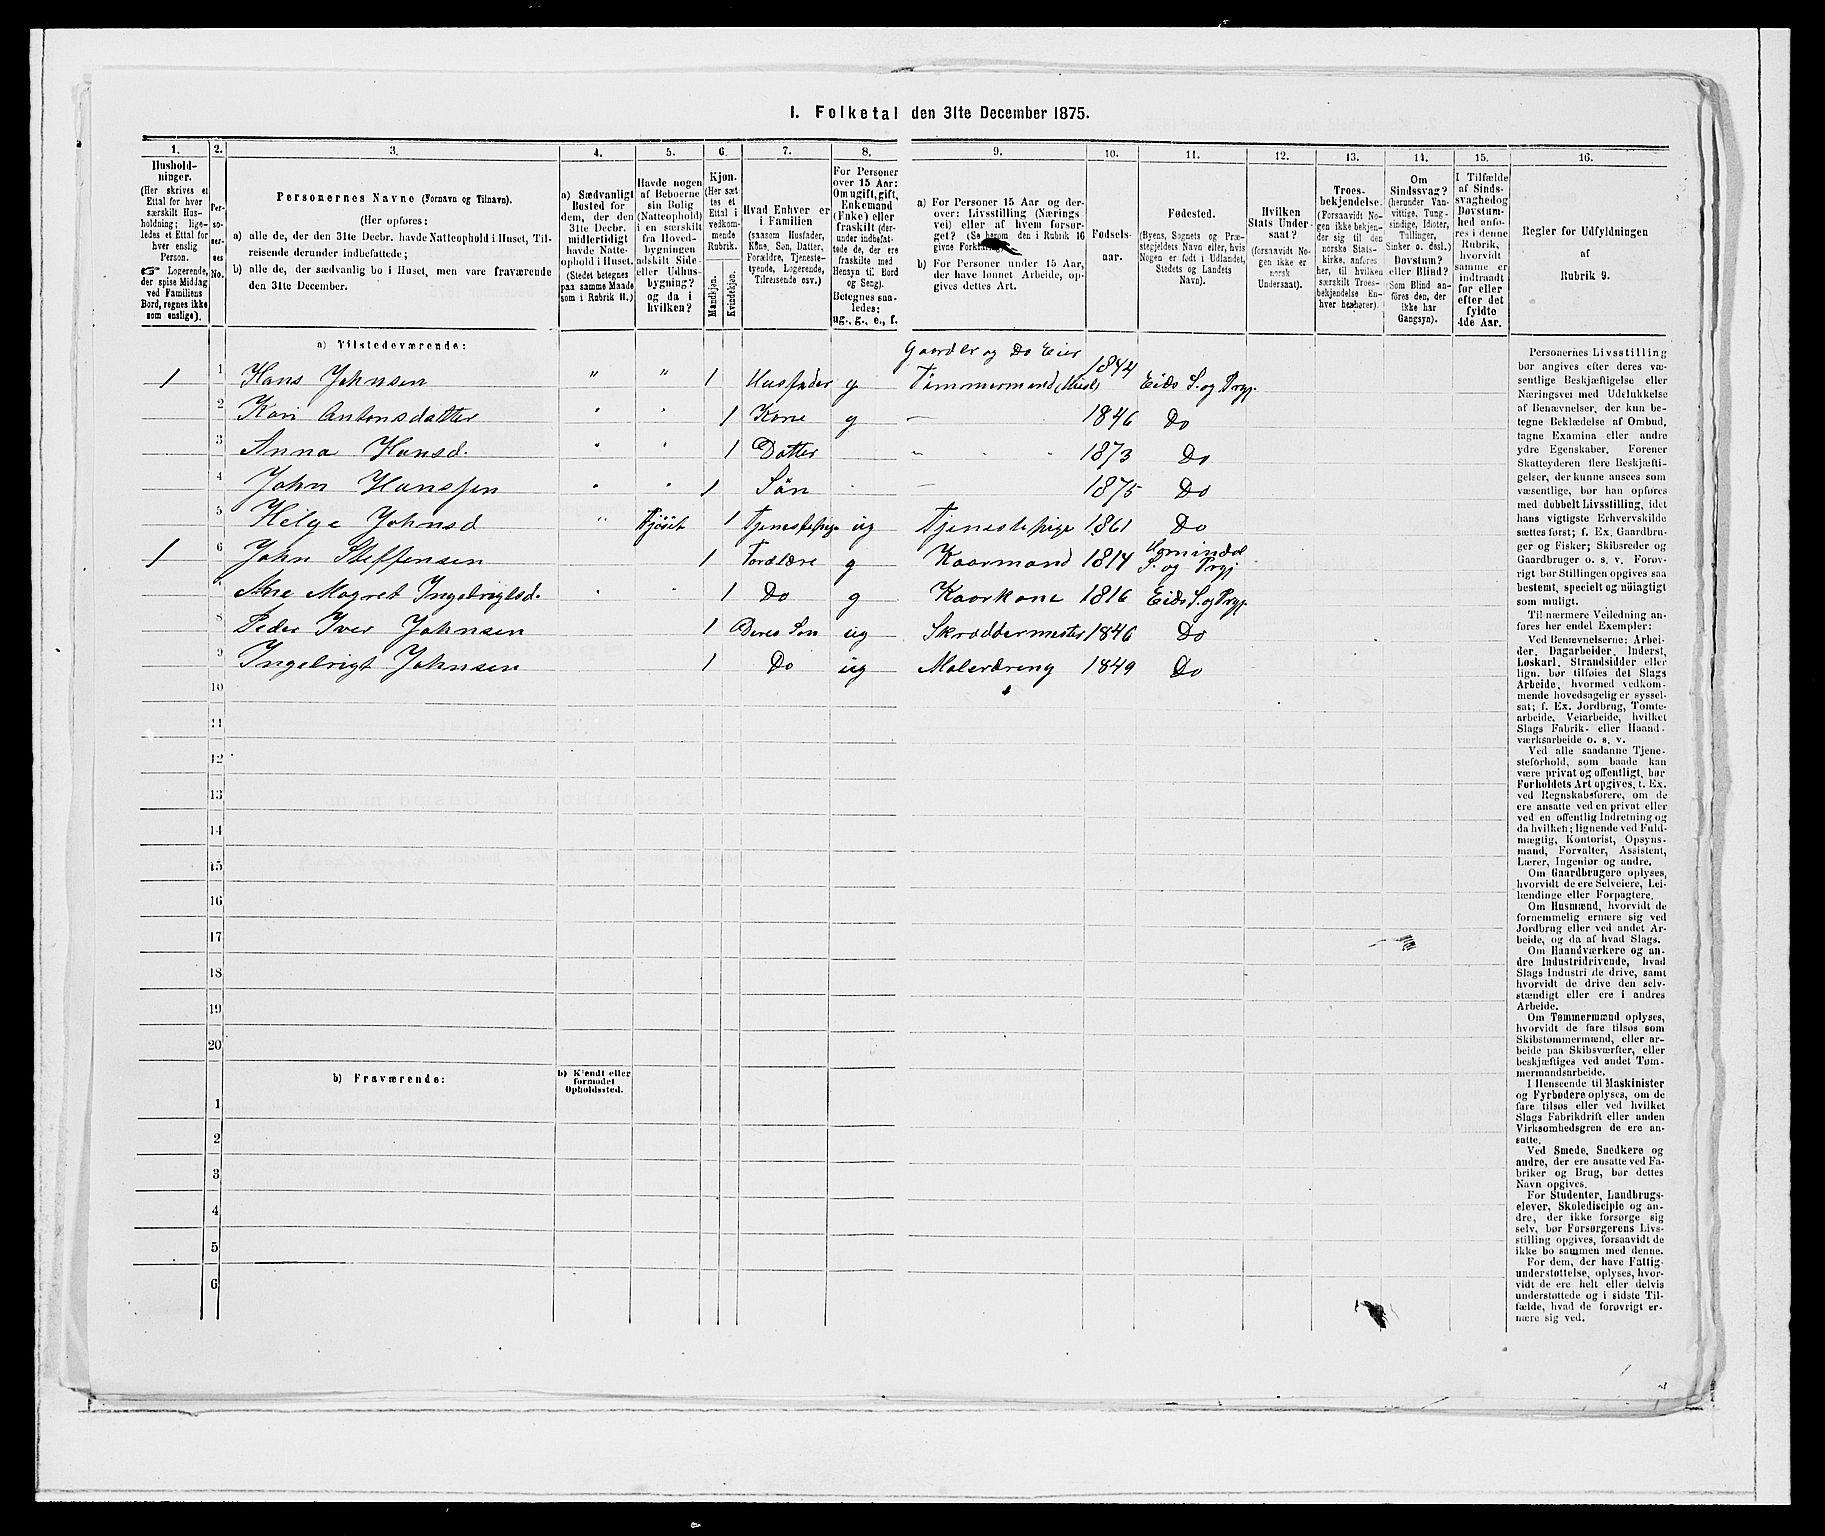 I. Folketal den 31te December 1875.
1.
Hushold-
ninger.
(Her skrives et
Ettal for hver
særskilt Hus-
holdning; lige-
ledes et Ettal for
hver enslig
Person.
☞ Logerende,
der spise Middag
ved Familiens
Bord, regnes ikke
som enslige).
2.
Per-
so-
ner-
nes
No.
3.
Personernes Navne (Fornavn og Tilnavn).
(Her opføres:
a) alle de, der den 31te Decbr. havde Natteophold i Huset, Til-
reisende derunder indbefattede;
b) alle de, der sædvanlig bo i Huset, men vare fraværende
den 31te December.
4.
a) Sædvanligt
Bosted for
dem, der den
31te Decbr.
midlertidigt
havde Natte-
ophold i Huset.
(Stedet betegnes
paa samme Maade
som i Rubrik 11.)
5.
Havde nogen
af Beboerne
sin Bolig
(Natteophold)
i en særskilt
fra Hoved-
bygningen
adskilt Side-
eller Udhus-
bygning?
og da i
hvilken?
6.
Kjøn.
(Her sæt-
tes et
Ettal i
vedkom-
mende
Rubrik.
Mandkjøn.
Kvindekjøn.
7.
Hvad Enhver er
i Familien
(saasom Husfader,
Kone, Søn, Datter,
Forældre, Tjeneste-
tyende, Logerende,
Tilreisende osv.)
8.
For Personer
over 15 Aar:
Om ugift, gift,
Enkemand
(Enke) eller
fraskilt (der-
under indbefat-
tede de, der ere
fraskilte med
Hensyn til Bord
og Seng).
Betegnes saa-
ledes:
ug., g., e., f.
9.
a) For Personer 15 Aar og der-
over: Livsstilling (Nærings-
vei) eller af hvem forsør-
get? (Se herom den i Rubrik 16
givne Forklaring).
b) For Personer under 15 Aar,
der have lønnet Arbeide, op-
gives dettes Art.
10.
Fødsels-
aar.
11.
Fødested.
(Byens, Sognets og Præ-
stegjeldets Navn eller, hvis
Nogen er født i Udlandet,
Stedets og Landets
Navn).
12.
Hvilken
Stats Under-
saat?
(forsaavidt No-
gen ikke er
norsk
Undersaat).
13.
Troes-
bekjendelse.
(Forsaavidt No-
gen ikke bekjen-
der sig til den
norske Stats-
kirke, anføres
her, til hvilken
særskilt Troes-
bekjendelse En-
hver henhører).
14.
Om
Sindssvag?
(herunder Van-
vittige, Tung-
sindige, Idioter,
Tullinger,
Sinker o. desl.)
Døvstum?
eller Blind?
(Som Blind an-
føres den, der
ikke har
Gangsyn).
15.
I Tilfælde
af Sinds-
svaghed og
Døvstum-
hed anfø-
res i denne
Rubrik,
hvorvidt
samme er
indtraadt
før eller
efter det
fyldte
4de Aar.
16.
Regler for Udfyldningen
af
Rubrik 9.
a) Tilstedeværende:
Gaardbr og Do Eier
1 1 Hans Johnsen " " 1 Husfader g Tømmermand (Huse) 1844 Eids S. og Prgj.
2 Kari Antonsdatter " " 1 Kone g — 1846 Do
3 Anna Hansd. " " 1 Datter " " " 1873 Do
4 John Hanssen " " 1 Søn — 1875 Do
5 Helge Johnsd " Fjøset 1 Tjenestepige ug Tjenestepige 1861 Do
1 6 John Steffensen 1 Forældre g Kaarmand 1814 S. og Prgj
7 Ane Magret Ingebrigtsd. " " 1 Do g Kaarkone 1816 Eids S. og Prgj.
8 Peder Iver Johnsen 1 Deres Søn ug Skræddermester 1846 Do
9 Ingebrigt Johnsen 1 Do ug Malerdreng 1849 Do
10
11
12
13
14
15
16
17
18
19
20
b) Fraværende:
b) Kjendt eller
formodet
Opholdssted.
1
2
3
4
5
6
Personernes Livsstilling
bør angives efter deres væ-
sentlige Beskjæftigelse eller
Næringsvei med Udelukkelse
af Benævnelser, der kun be-
tegne Beklædelse af Ombud,
tagne Examina eller andre
ydre Egenskaber. Forener
Skatteyderen flere Beskjæfti-
gelser, der kunne ansees som
væsentlige, bør han opføres
med dobbelt Livsstilling, idet
hans vigtigste Erhvervskilde
sættes først; f. Ex. Gaardbru-
ger og Fisker; Skibsreder og
Gaardbruger o. s. v. Forøv-
rigt bør Stillingen opgives saa
bestemt, specielt og nöiagtigt
som muligt.
Til nærmere Veiledning an-
føres her endel Exempler:
Ved Benævnelserne: Arbei-
der, Dagarbeider, Inderst,
Løskarl, Strandsidder eller
lign. bør tilføies det Slags
Arbeide, hvormed vedkom-
mende hovedsagelig er syssel-
sat; f. Ex. Jordbrug, Tomte-
arbeide, Veiarbeide, hvilket
Slags Fabrik- eller Haand-
værksarbeide o. s. v.
Ved alle saadanne Tjene-
steforhold, som baade kan
være privat og offentligt, bør
Forholdets Art opgives, t. Ex.
ved Regnskabsførere, om de
ere ansatte ved en privat eller
ved en offentlig Indretning og
da hvilken; lignende ved Fuld-
mægtig, Kontorist, Opsyns-
mand, Forvalter, Assistent,
Lærer, Ingeniør og andre.
Om Gaardbrugere oplyses,
hvorvidt de ere Selveiere, Lei-
lændinge eller Forpagtere.
Om Husmænd, hvorvidt de
fornemmelig ernære sig ved
Jordbrug eller ved andet Ar-
beide, og da af hvad Slags.
Om Haandværkere og an-
dre Industridrivende, hvad
Slags Industri de drive, samt
hvorvidt de drive den selv-
stændigt eller ere i andres
Arbeide.
Om Tømmermænd oplyses,
hvorvidt de fare tilsøs som
Skibstømmermænd, eller ar-
beide paa Skibsværfter, eller
beskjæftiges ved andet Tøm-
mermandsarbeide.
I Henseende til Maskinister
og Fyrbødere oplyses, om de
fare tilsøs eller ved hvilket
Slags Fabrikdrift eller anden
Virksomhedsgren de ere an-
satte.
Ved Smede, Snedkere og
andre, der ere ansatte ved Fa-
briker og Brug, bør dettes
Navn opgives.
For Studenter, Landbrugs-
elever, Skoledisciple og an-
dre, der ikke forsørge sig
selv, bør Forsørgerens Livs-
stilling opgives, forsaavidt de
ikke bo sammen med denne.
For dem, der have Fattig-
understøttelse, oplyses, hvor-
vidt de ere helt eller delvis
understøttede og i sidste Til-
fælde, hvad de forøvrigt er-
nære sig ved.